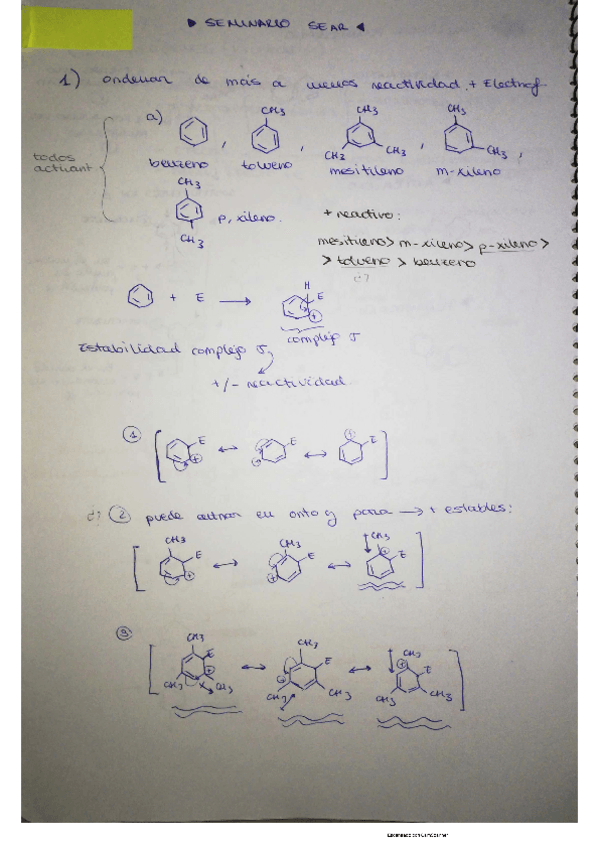 ▶ SEMINARIO SEAR ◀
1) ordenar de más a menos reactividad. + Electrof.
a)
benzeno , tolueno , mesitileno , m-xileno ,
CH3 CH3 CH3 CH3 CH3 CH3
todos
activant
CH3
CH3
p, xileno.
+ reactivo:
mesitileno > m-xileno > p-xileno >
> tolueno > benzeno
¿?
+ E → H E +
complejo σ
Estabilidad complejo σ
+/- reactividad
① [ E + ↔ E ↔ + E ]
② puede entrar en orto y para → + estables:
[ CH3 E + ↔ CH3 E ↔ CH3 + E ]
CH3 E + CH3 CH3 ↔ CH3 E CH3 CH3 ↔ CH3 + E CH3 CH3
Escaneado con CamScanner